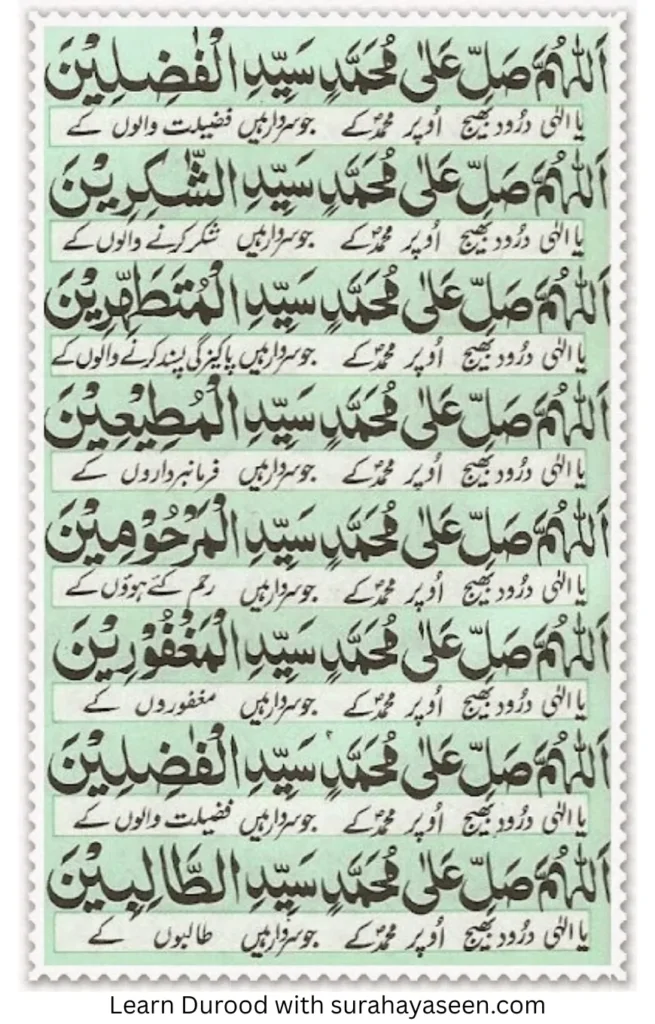 اَللّٰهُمَّ صَلِّ عَلٰى مُحَمَّدٍ سَيِّدِ الْفٰضِلِيْنَ
یا الٰہی درُود بھیج اُوپر محمدؐ کے جو سردار ہیں فضیلت والوں کے
اَللّٰهُمَّ صَلِّ عَلٰى مُحَمَّدٍ سَيِّدِ الشّٰكِرِيْنَ
یا الٰہی درُود بھیج اُوپر محمدؐ کے جو سردار ہیں شکر کرنے والوں کے
اَللّٰهُمَّ صَلِّ عَلٰى مُحَمَّدٍ سَيِّدِ الْمُتَطَهِّرِيْنَ
یا الٰہی درُود بھیج اُوپر محمدؐ کے جو سردار ہیں پاکیزگی پسند کرنے والوں کے
اَللّٰهُمَّ صَلِّ عَلٰى مُحَمَّدٍ سَيِّدِ الْمُطِيْعِيْنَ
یا الٰہی درُود بھیج اُوپر محمدؐ کے جو سردار ہیں فرمانبرداروں کے
اَللّٰهُمَّ صَلِّ عَلٰى مُحَمَّدٍ سَيِّدِ الْمَرْحُوْمِيْنَ
یا الٰہی درُود بھیج اُوپر محمدؐ کے جو سردار ہیں رحم کئے ہوؤں کے
اَللّٰهُمَّ صَلِّ عَلٰى مُحَمَّدٍ سَيِّدِ الْمَغْفُوْرِيْنَ
یا الٰہی درُود بھیج اُوپر محمدؐ کے جو سردار ہیں مغفوروں کے
اَللّٰهُمَّ صَلِّ عَلٰى مُحَمَّدٍ سَيِّدِ الْفٰضِلِيْنَ
یا الٰہی درُود بھیج اُوپر محمدؐ کے جو سردار ہیں فضیلت والوں کے
اَللّٰهُمَّ صَلِّ عَلٰى مُحَمَّدٍ سَيِّدِ الطَّالِبِيْنَ
یا الٰہی درُود بھیج اُوپر محمدؐ کے جو سردار ہیں طالبوں کے
Learn Durood with surahayaseen.com